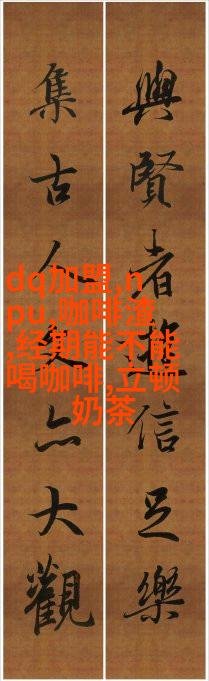 與賢者信足樂
集古人亦大觀
dq加盟,n
pu,咖啡渣
,经期能不能
喝咖啡,立顿
奶茶